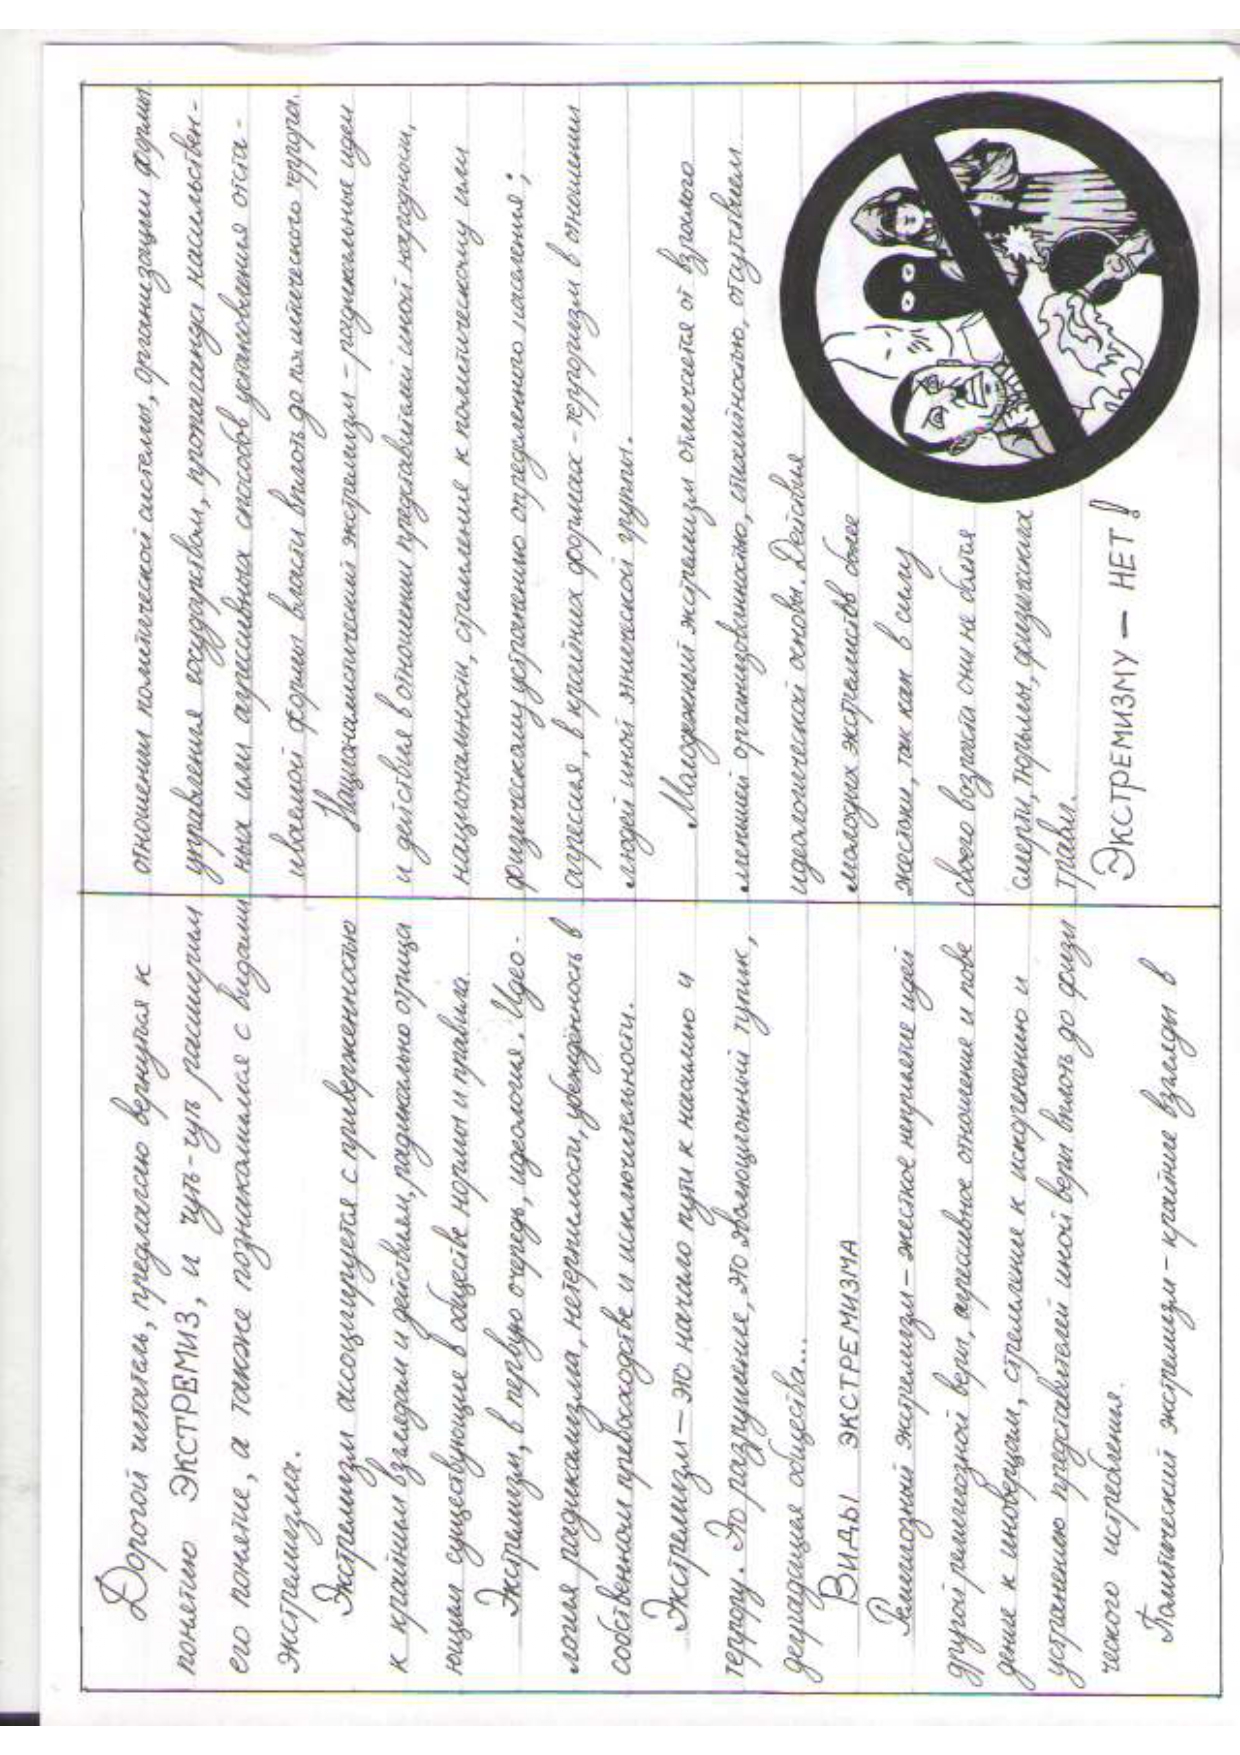 Дорогой читатель, предлагаю вернутся к
понятию ЭКСТРЕМИЗ, и чуть-чуть расширим
его понятие, а также познакомимся с видами
экстремизма.
Экстремизм ассоциируется с приверженностью
к крайним взглядам и действиям, радикально отрица
ющим существующие в обществе нормы и правила.
Экстремизм, в первую очередь, идеология. Идео-
логия радикализма, нетерпимости, убеждённость в
собственном превосходстве и исключительности.
Экстремизм — это начало пути к насилию и
террору. Это разрушение, это эволюционный тупик,
деградация общества...
ВИДЫ ЭКСТРЕМИЗМА
Религиозный экстремизм — жесткое неприятие идей
другой религиозной веры, агрессивное отношение и пове
дение к иноверцам, стремление к искоренению и
устранению представителей иной веры вплоть до физи
ческого истребления.
Политический экстремизм - крайние взгляды в
отношении политической системы, организации формы
управления государством, пропаганда насильствен-
ных или агрессивных способов установления отста-
иваемой формы власти вплоть до политического террора.
Националистический экстремизм - радикальные идеи
и действия в отношении представителей иной народности,
национальности, стремление к политическому или
физическому устранению определенного населения;
агрессия, в крайних формах - терроризм в отношении
людей иной этнической группы.
Молодежный экстремизм отличается от взрослого
меньшей организованностью, стихийностью, отсутствием
идеологической основы. Действия
молодых экстремистов более
жестоки, так как в силу
своего возраста они не боятся
смерти, тюрьмы, физических
травм.
ЭКСТРЕМИЗМУ — НЕТ!